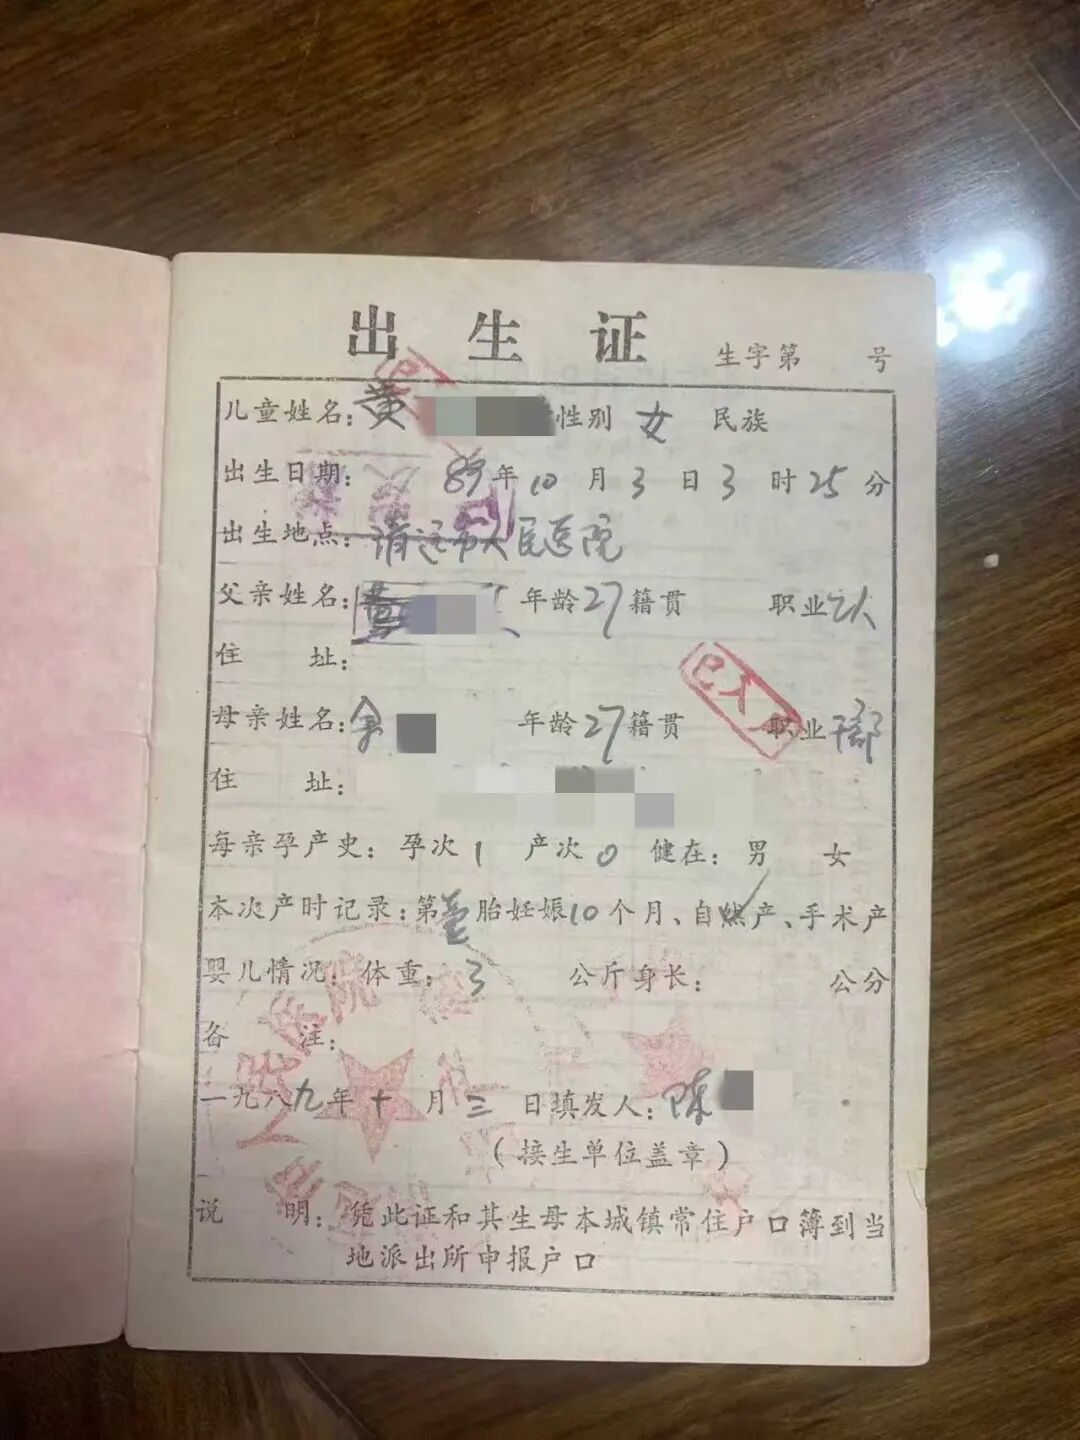 出生证 生字第 号
儿童姓名：黄 性别 女 民族
出生日期： 89年10月3日3时25分
出生地点：清远市人民医院
父亲姓名： 年龄27籍贯 职业
住 址：
母亲姓名：余 年龄27籍贯 职业干部
住 址：
母亲孕产史：孕次1 产次0 健在：男 女
本次产时记录：第壹胎妊娠10个月、自然产、手术产
婴儿情况：体重：3 公斤身长： 公分
备 注：
一九八九年十月三日填发人：陈
（接生单位盖章）
说 明：凭此证和其生母本城镇常住户口簿到当
地派出所申报户口
已入户